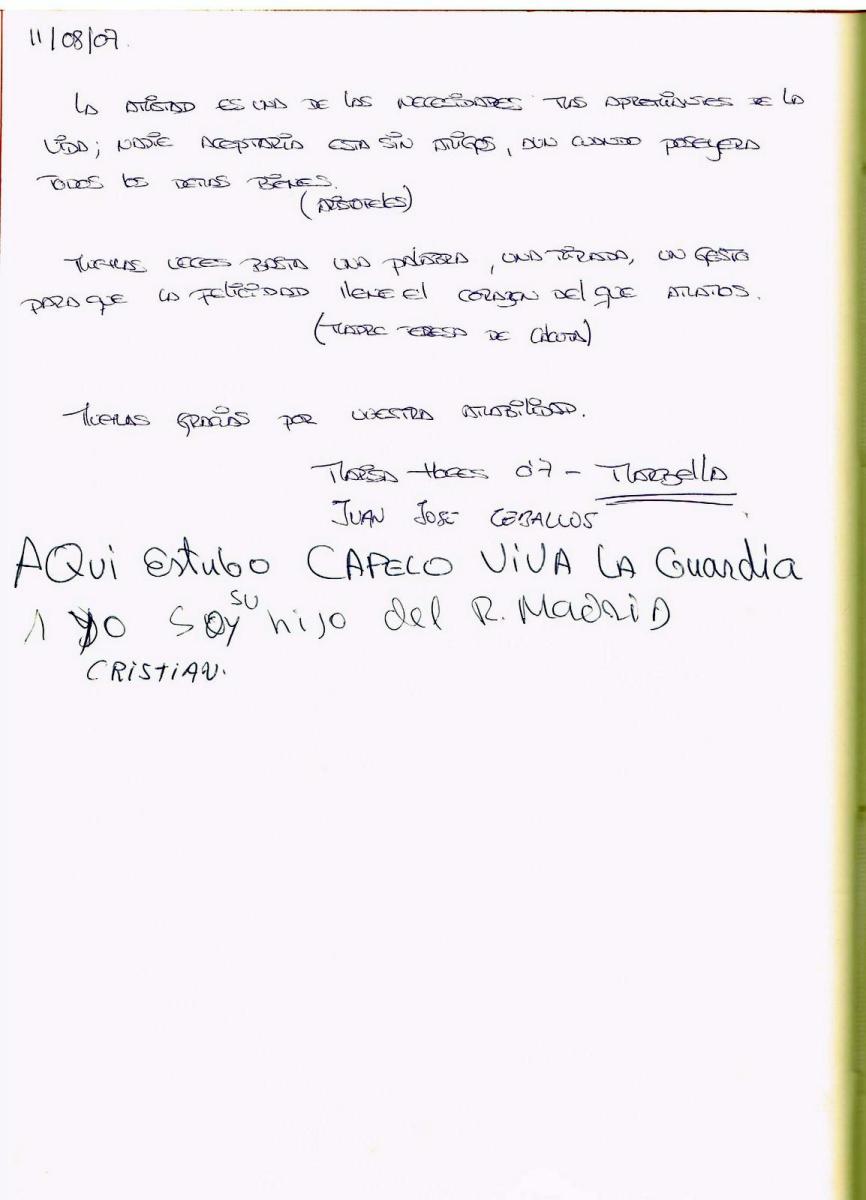 11/08/07.
LA AMISTAD ES UNA DE LAS NECECIDADES MAS APREMIANTES DE LA
VIDA; NADIE ACEPTARIA ESTA SIN AMIGOS, AUN CUANDO POSEYERA
TODOS LOS DEMAS BIENES.
(ARISTOTELES)
MUCHAS VECES BASTA UNA PALABRA, UNA MIRADA, UN GESTO
PARA QUE LA FELICIDAD llENE El CORAZON DEl QUE AMAMOS.
(MADRE TERESA DE CALCUTA)
MUCHAS GRACIAS POR VUESTRA AMABILIDAD.
07 - MARBEllA
JUAN JOSE CEBALLOS
AQui Estubo CAPELO ViVA LA Guardia
1 yo Soy su hijo del R. MadRiD
CRiSTiAN.